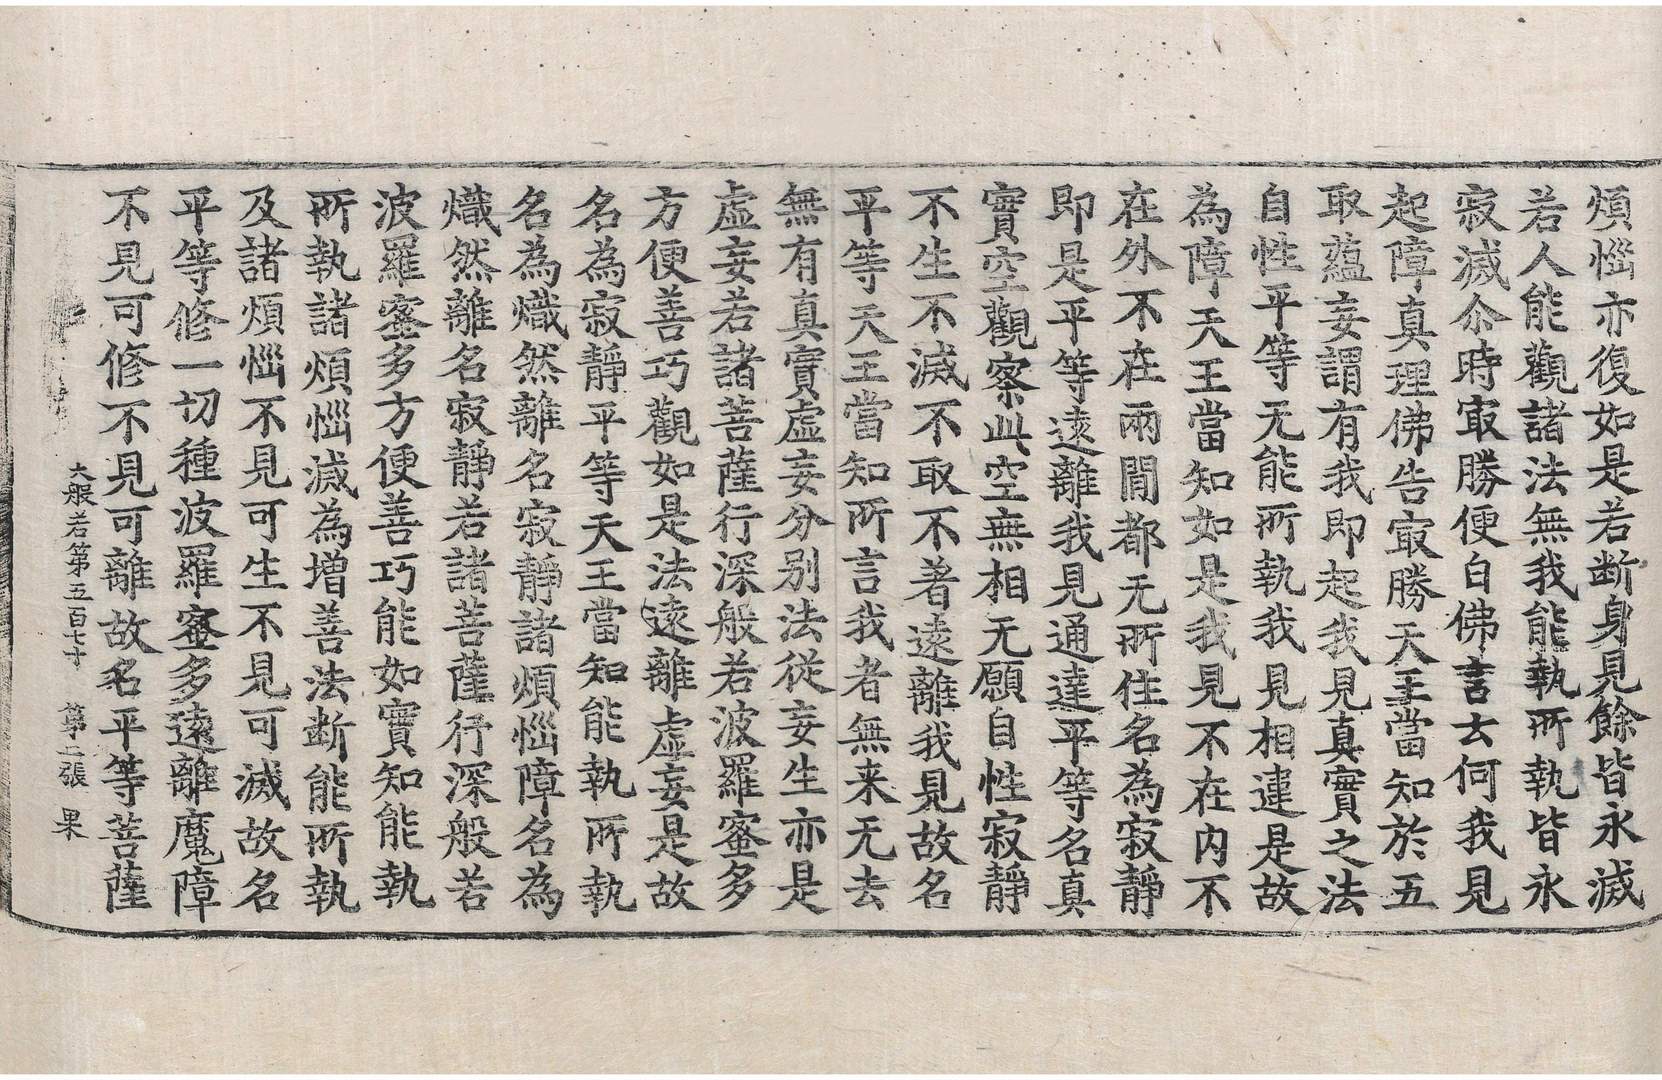 煩惱亦復如是若断身見餘皆永滅
若人能觀諸法無我能執所執皆永
寂滅尒時㝡勝便白佛言云何我見
起障真理佛告㝡勝天王當知於五
取蘊妄謂有我即起我見真實之法
自性平等无能所執我見相違是故
為障天王當知如是我見不在内不
在外不在兩間都无所住名為寂靜
即是平等逺離我見通達平等名真
實空觀察此空無相无願自性寂靜
不生不滅不取不著逺離我見故名
平等天王當知所言我者無来无去
無有真實虛妄分别法從妄生亦是
虛妄若諸菩薩行深般若波羅蜜多
方便善巧觀如是法逺離虛妄是故
名為寂靜平等天王當知能執所執
名為熾然離名寂靜諸煩惱障名為
熾然離名寂靜若諸菩薩行深般若
波羅蜜多方便善巧能如實知能執
所執諸煩惱滅為增善法断能所執
及諸煩惱不見可生不見可滅故名
平等修一切種波羅蜜多逺離魔障
不見可修不見可離故名平等菩薩
大般若第五百七十　第二張　果